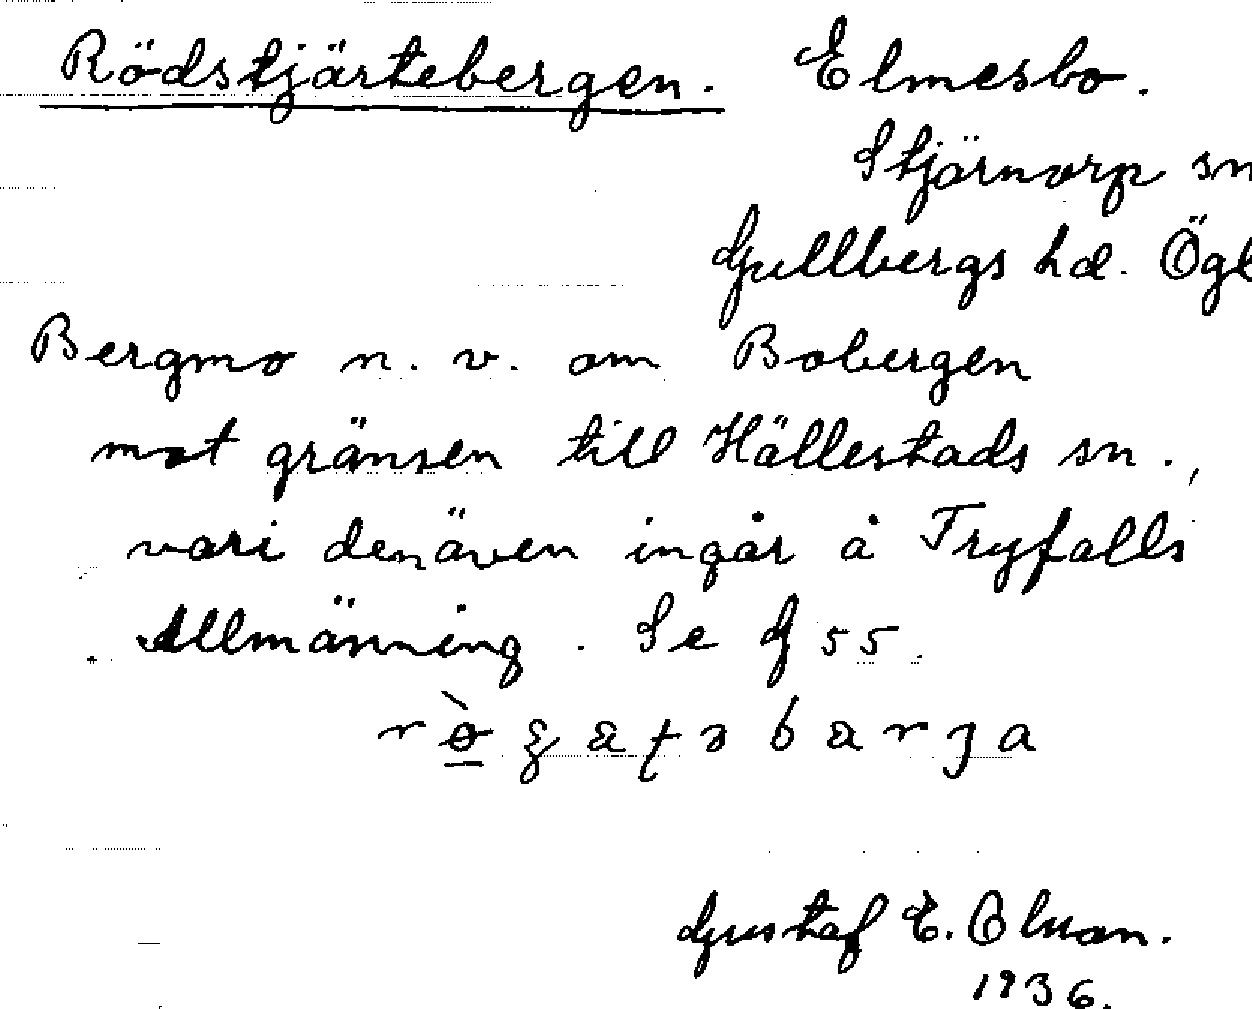 Rödstjärtebergen. Elmesbo.
Stjärnorp sn
Gullbergs hd. Ögl
Bergmo n. v. om Bobergen
mot gränsen till Hällestads sn.,
vari denäven ingår å Tryfalls
Allmänning. Se G 55.
Gustaf E. Olson.
1936.